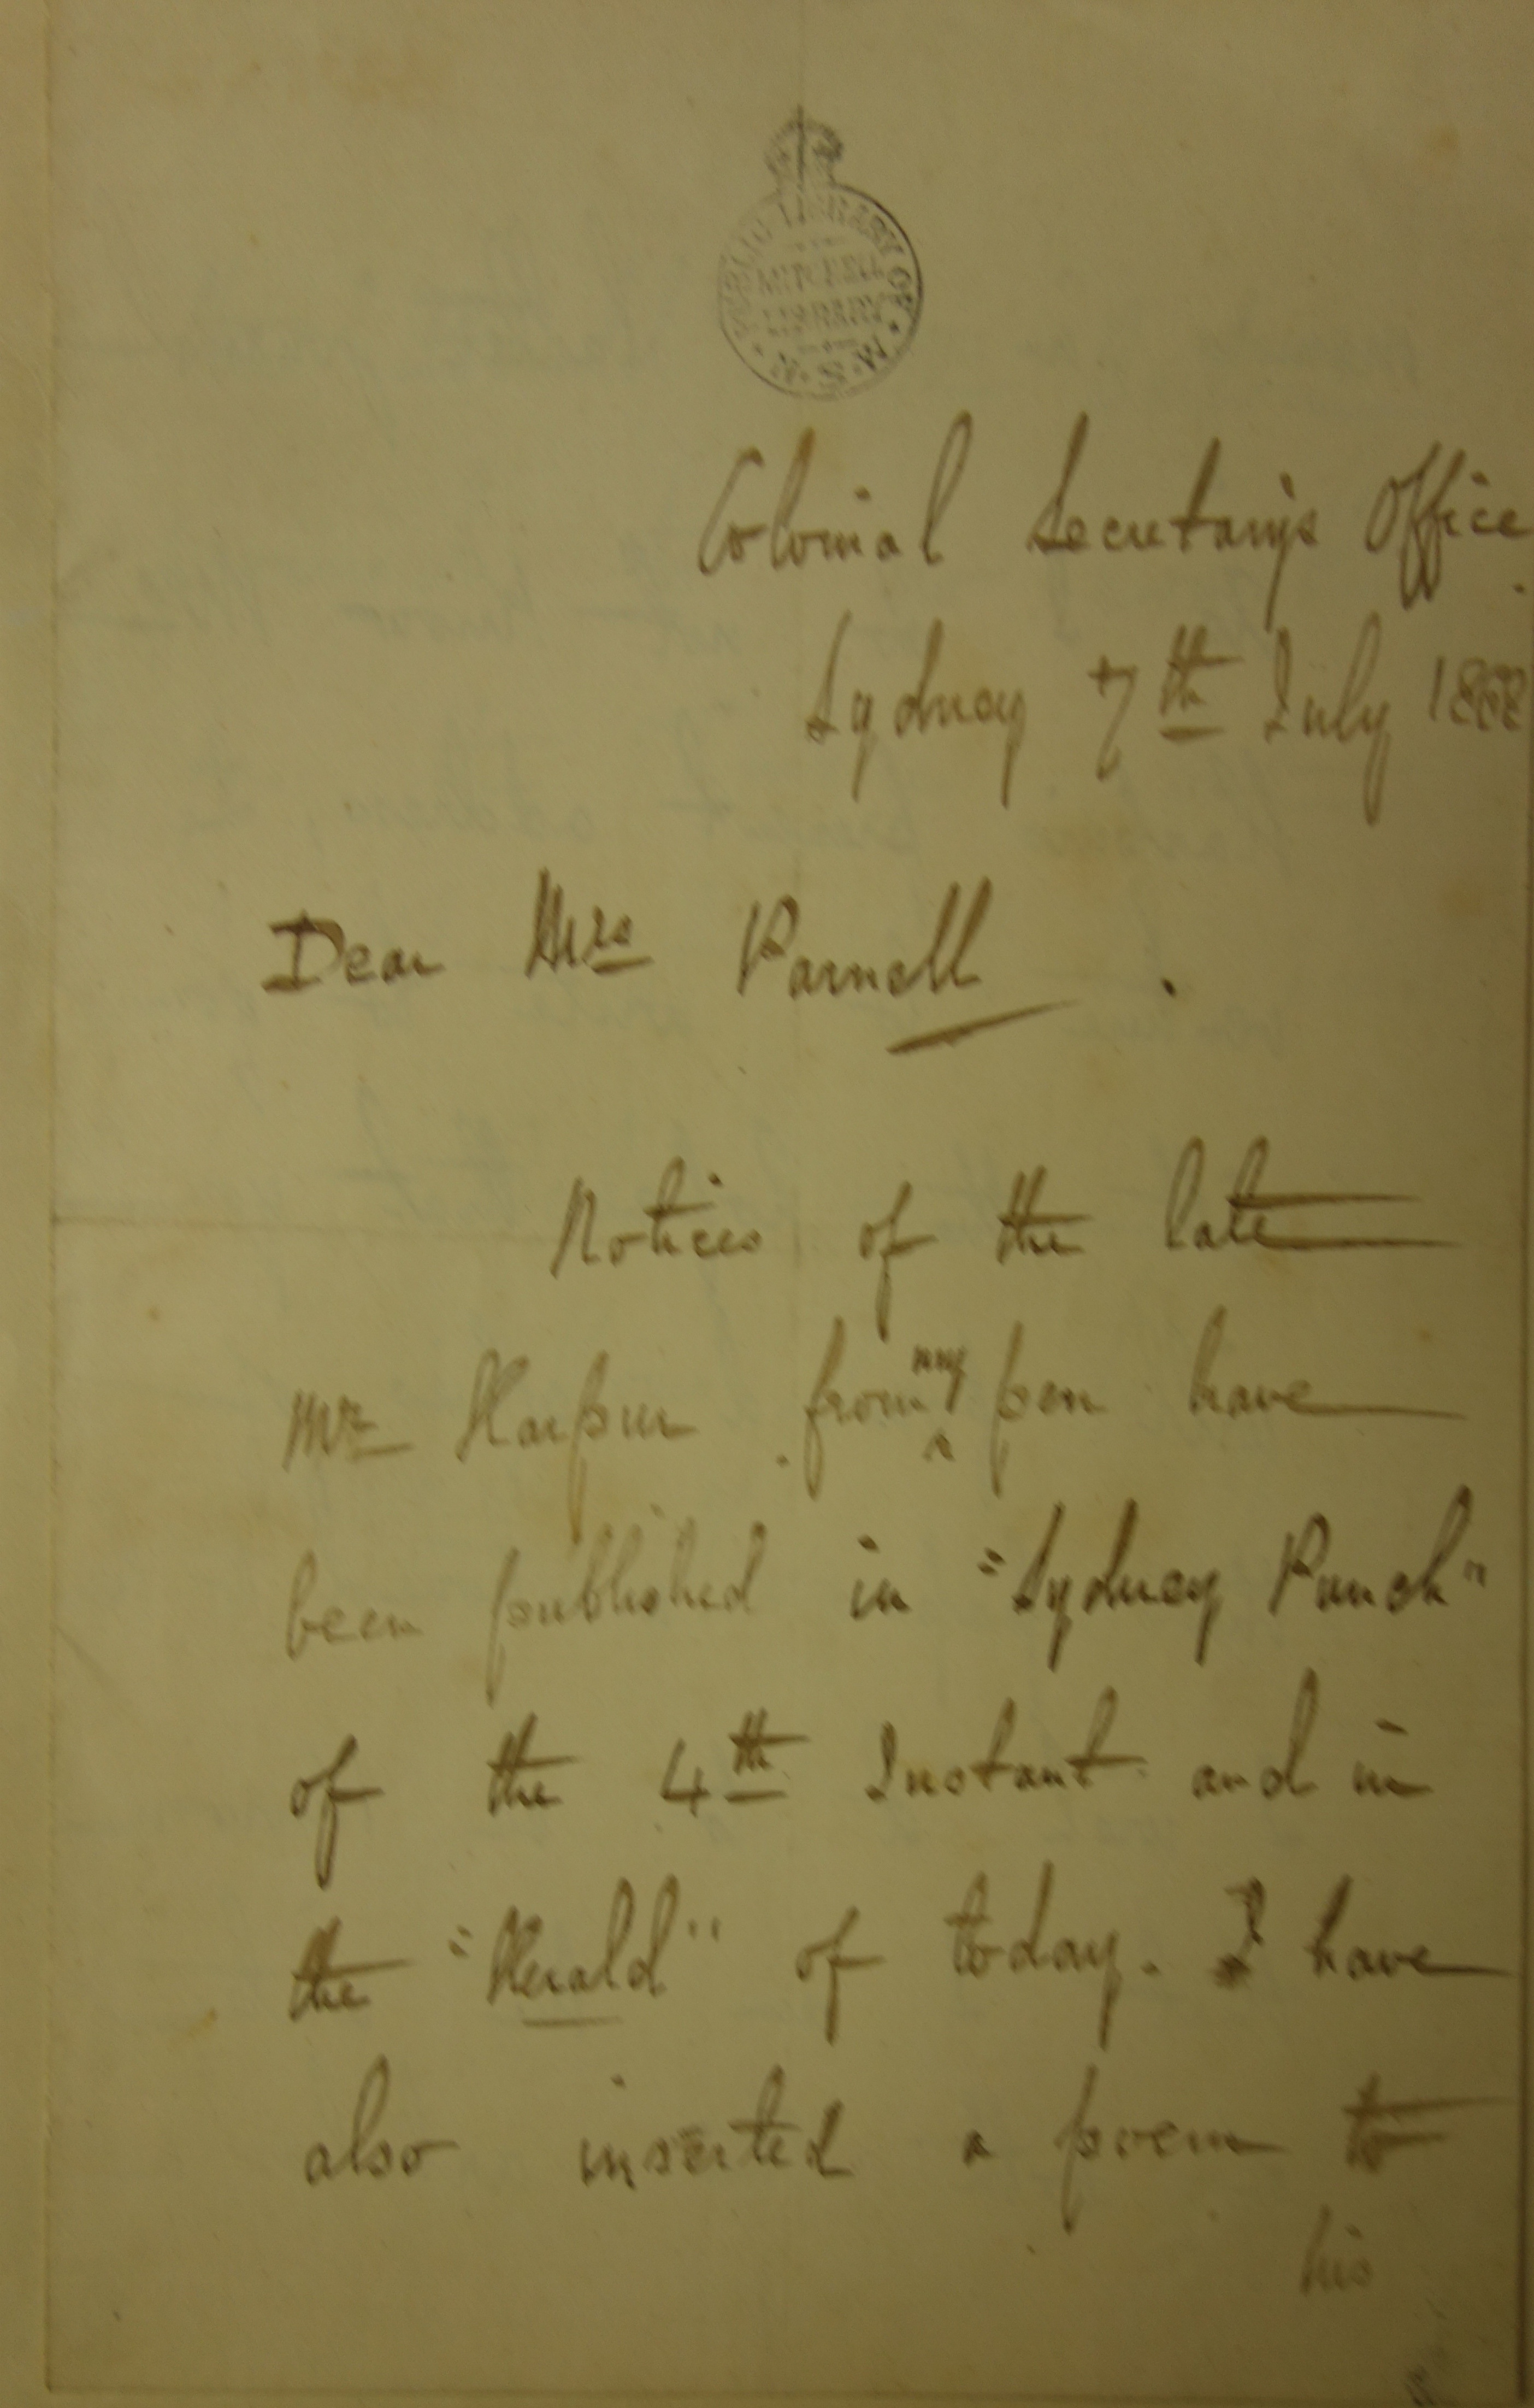 PUBLIC LIBRARY OF
MITCHELL
LIBRARY
N.S.W.
Colonial Secretary's Office.
Sydney 7th July 1868
Dear Mrs Parnell.
Notices of the late
Mr Harpur from my pen have
been published in "Sydney Punch"
of the 4th Instant and in
the "Herald" of today. I have
also inserted a poem to
his